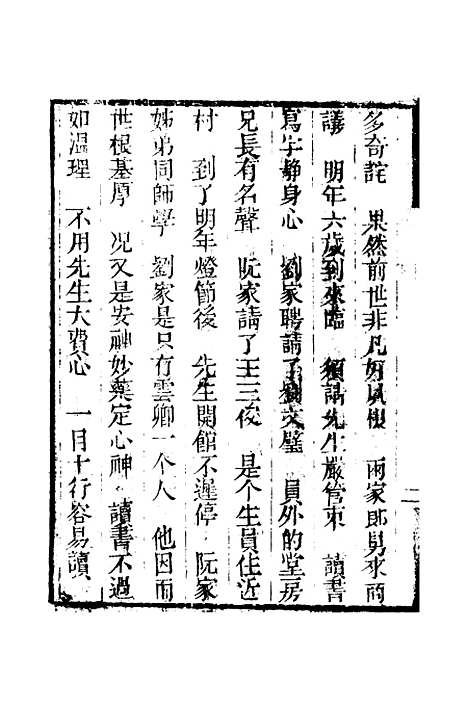 多奇詫　果然前世非凡　兩家郎舅來商
議　明年六歲到來臨　須請先生嚴管束　讀書
寫字靜身心　劉家聘請了劉文璧　員外的堂房
兄長有名聲　阮家請了王三俊　是个生員住近
村　到了明年燈節後　先生開館不遲停　阮家
姊弟同師學　劉家是只有雲卿一个人　他因而
世根基厚　况又是安神妙藥定心神　讀書不過
如溫理　不用先生大費心　一目十行容易讀
二